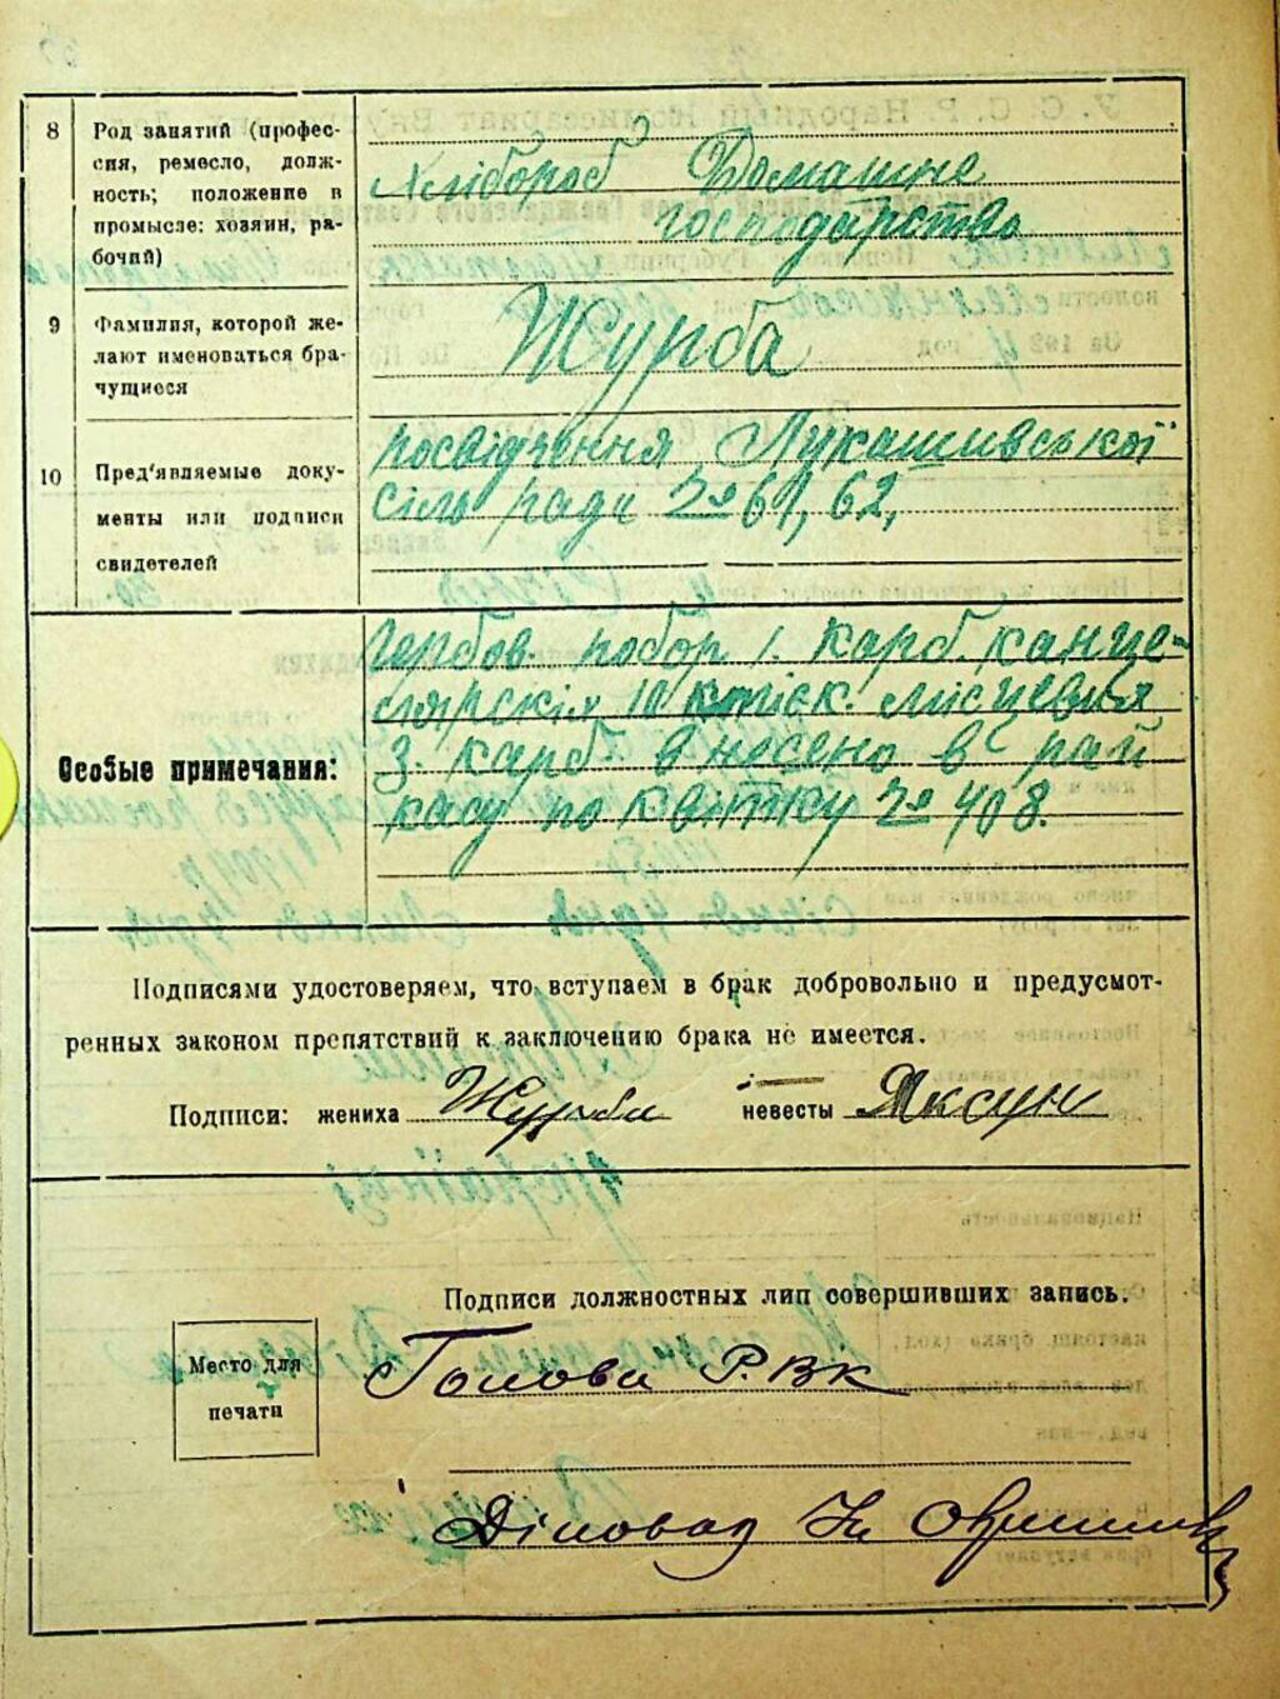 8 Род занятий (профес-
сия, ремесло, долж-
ность; положение в
промысле: хозяин, ра-
бочий)
Хлібороб Домашне
господарство
9 Фамилия, которой же-
лают именоваться бра-
чущиеся
Журба
10 Пред'являемые доку-
менты или подписи
свидетелей
посвідчення Лукашивської
сіль ради № 61, 62,
Особые примечания:
Гербов. побор 1. карб. канце-
лярскіх 10 коп. місцевих
3. карб. внесено в рай
касу по квітку № 408.
Подписями удостоверяем, что вступаем в брак добровольно и предусмот-
ренных законом препятствий к заключению брака не имеется.
Подписи: жениха Журба невесты Яксун
Подписи должностных лиц совершивших запись.
Место для
печати
Голова Р.ВК
Діловод